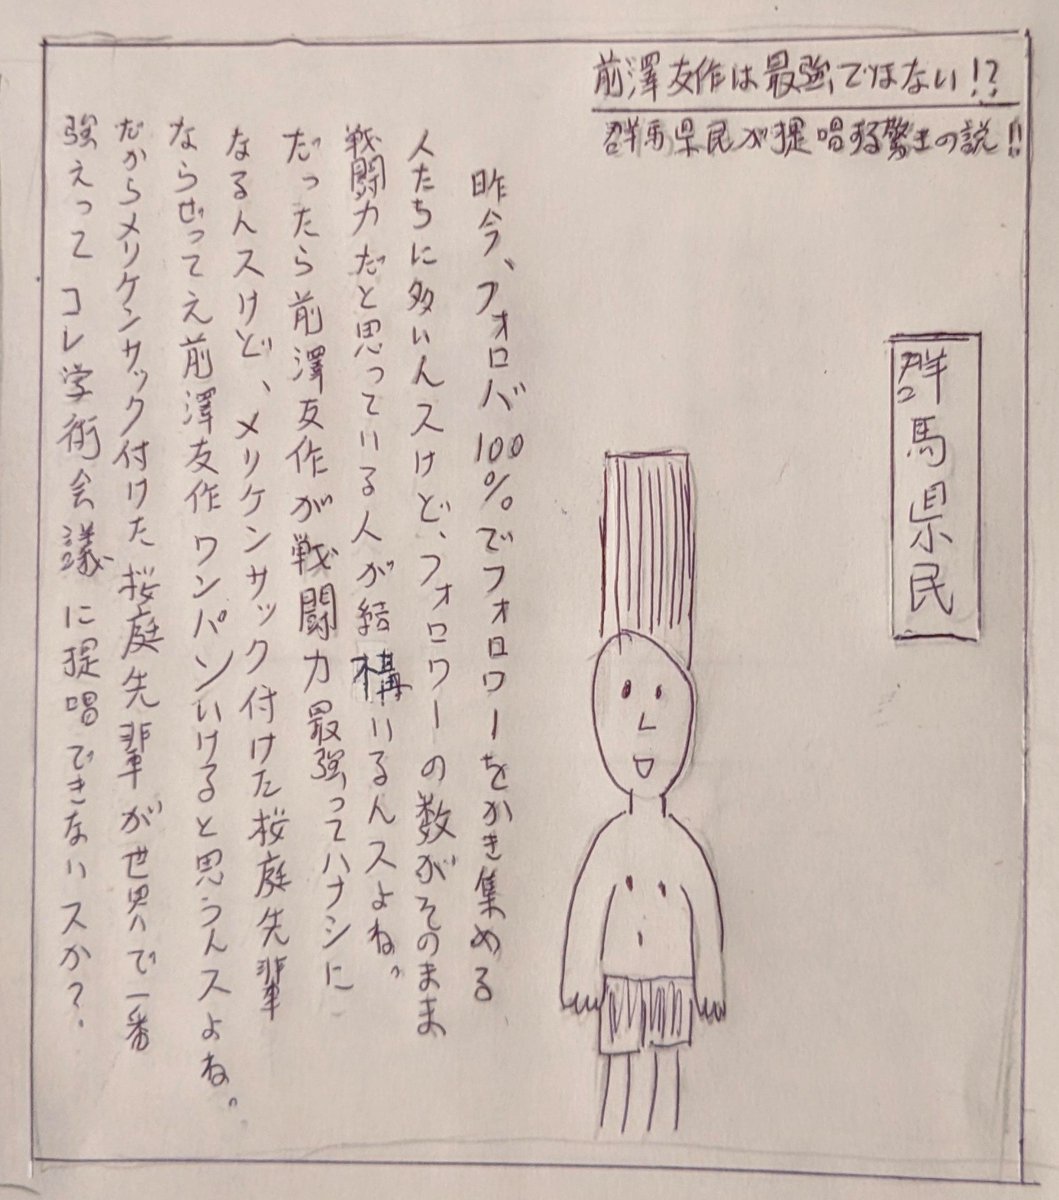 前澤友作は最強ではない!?
群馬県民が提唱する驚キの説!!
群馬県民
昨今、フォロバ100%でフォロワーをかき集める
人たちに多いんスけど、フォロワーの数がそのまま
戦闘力だと思っている人が結構いるんスよね。
だったら前澤友作が戦闘力最強ってハナシに
なるんスけど、メリケンサック付けた桜庭先輩
ならぜってえ前澤友作ワンパンいけると思うんスよね。
だからメリケンサック付けた桜庭先輩が世界で一番
強えって コレ学術会議に提唱できないスか?